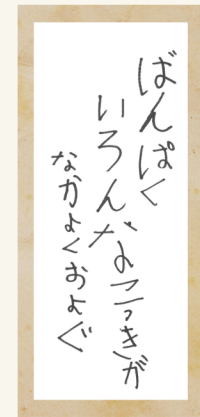 ばんぱく
いろんなこっきが
なかよくおよぐ